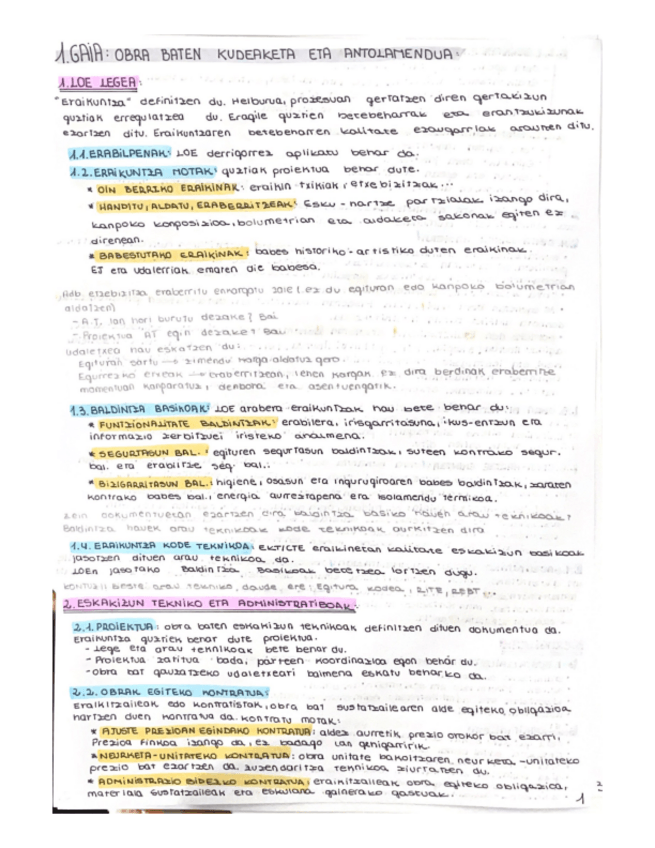 1.GAIA: OBRA BATEN KUDEAKETA ETA ANTOLAMENDUA:
1.LOE LEGEA:
"Eraikuntza" definitzen du. Helburua, prozesuan gertatzen diren gertakizun
guztiak erregulatzea du. Eragile guztien betebeharrak eta erantzukizunak
ezartzen ditu. Eraikuntzaren betebeharren kalitate ezaugarriak arautzen ditu.
1.1.ERABILPENAK: LOE derrigorrez aplikatu behar da.
1.2.ERAIKUNTZA MOTAK: guztiak proiektua behar dute.
* OIN BERRIKO ERAIKINAK: eraikin txikiak, etxebizitzak...
* HANDITU, ALDATU, ERABERRITZEAK: Esku-hartze partzialak izango dira,
kanpoko konposizioa, bolumetrian eta aldaketa sakonak egiten ez
direnean.
* BABESTUTAKO ERAIKINAK: babes historiko-artistiko duten eraikinak.
EJ eta udalerriak ematen die babesa.
Adb. etxebizitza eraberritu (ez du egituran edo kanpoko bolumetrian
aldatzen)
- A.T. lan hori burutu dezake? Bai
- Proiektua AT egin dezake? Bai
udaletxea hau eskatzen du:
Egiturak sartu → zimendu karga aldatua garo.
Egurrezko ereak → eraberritzean, lehen kargak ez dira berdinak eraberritze
momentuan konparatuz, denbora eta asentuengatik.
1.3.BALDINTZA BASIKOAK: LOE arabera eraikuntzak hau bete behar du:
* FUNTZIONALITATE BALDINTZAK: erabilera, irisgarritasuna, ikus-entzun eta
informazio zerbitzuei iristeko ahalmena.
* SEGURTASUN BAL.: egituren segurtasun baldintzak, suteen kontrako segur.
bal. eta erabiltze seg. bal.
* BIZIGARRITASUN BAL.: higiene, osasun eta ingurugiroaren babes baldintzak, zarataren
kontrako babes bal., energia aurreztapena eta isolamendu termikoa.
Zein dokumentuetan ezartzen dira baldintza basiko hauen arau teknikoak?
Baldintza hauek arau teknikoak kode teknikoak aurkitzen dira
1.4. ERAIKUNTZA KODE TEKNIKOA: EKT/CTE eraikinetan kalitate eskakizun basikoak
jasotzen dituen arau teknikoa da.
LOEn jasotako Baldintza Basikoak betetzea lortzen dugu.
KONTUZ!! Beste arau tekniko, daude, ere; Egitura, kodea, RITE, REBT...
2. ESKAKIZUN TEKNIKO ETA ADMINISTRATIBOAK:
2.1.PROIEKTUA: obra baten eskakizun teknikoak definitzen dituen dokumentua da.
Eraikuntza guztiek behar dute proiektua.
- Lege eta arau teknikoak bete behar du.
- Proiektua zatitua bada, parteen koordinazioa egon behar du.
- Obra bat gauzatzeko udaletxeari baimena eskatu beharko da.
2.2. OBRAK EGITEKO KONTRATUA:
Eraikitzaileak edo kontratistak, obra bat sustatzailearen alde egiteko obligazioa
hartzen duen kontratua da. Kontratu motak:
* AJUSTE PREZIOAN EGINDAKO KONTRATUA: aldez aurretik prezio orokor bat ezarri,
Prezioa finkoa izango da, ez badago lan gehigarririk.
* NEURKETA-UNITATEKO KONTRATUA: obra unitate bakoitzaren neurketa-unitateko
prezio bat ezartzen da. Zuzendaritza teknikoa ziurtatzen du.
* ADMINISTRAZIO BIDEZKO KONTRATUA: eraikitzaileak obra egiteko obligazioa,
materiala sustatzaileak eta eskulana gainerako gastuak.
1